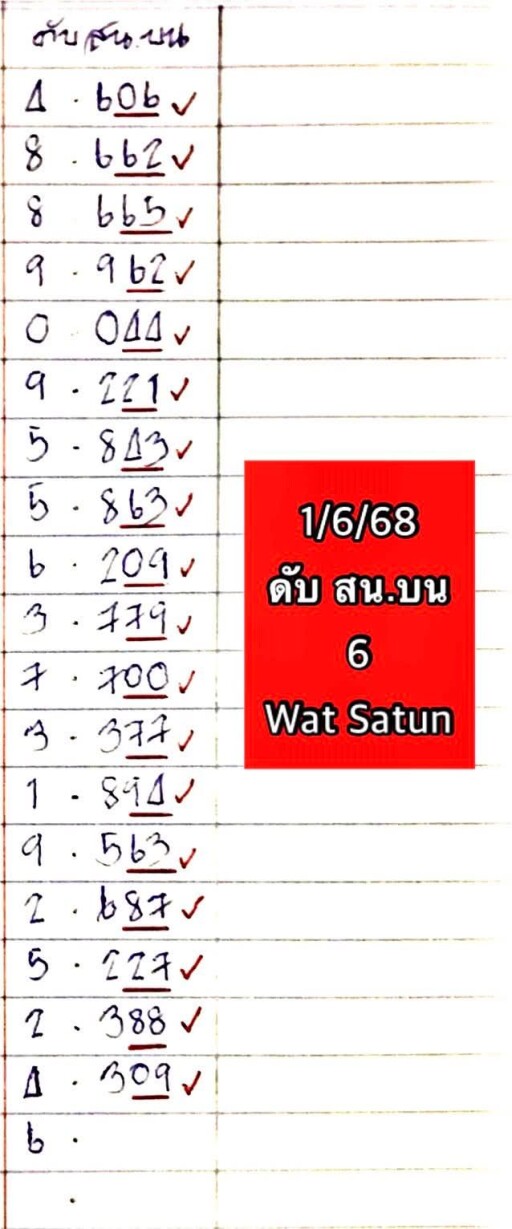 ดับ สน.บน
4 · 606 ✓
8 · 662 ✓
8 665 ✓
9 · 962 ✓
0 044 ✓
9 · 221 ✓
5 · 843 ✓
5 · 863 ✓
6 · 209 ✓
3 · 779 ✓
7 · 700 ✓
3 · 377 ✓
1 · 894 ✓
9 · 563 ✓
2 · 687 ✓
5 · 227 ✓
2 · 388 ✓
4 · 309 ✓
6 ·
·
1/6/68
ดับ สน.บน
6
Wat Satun